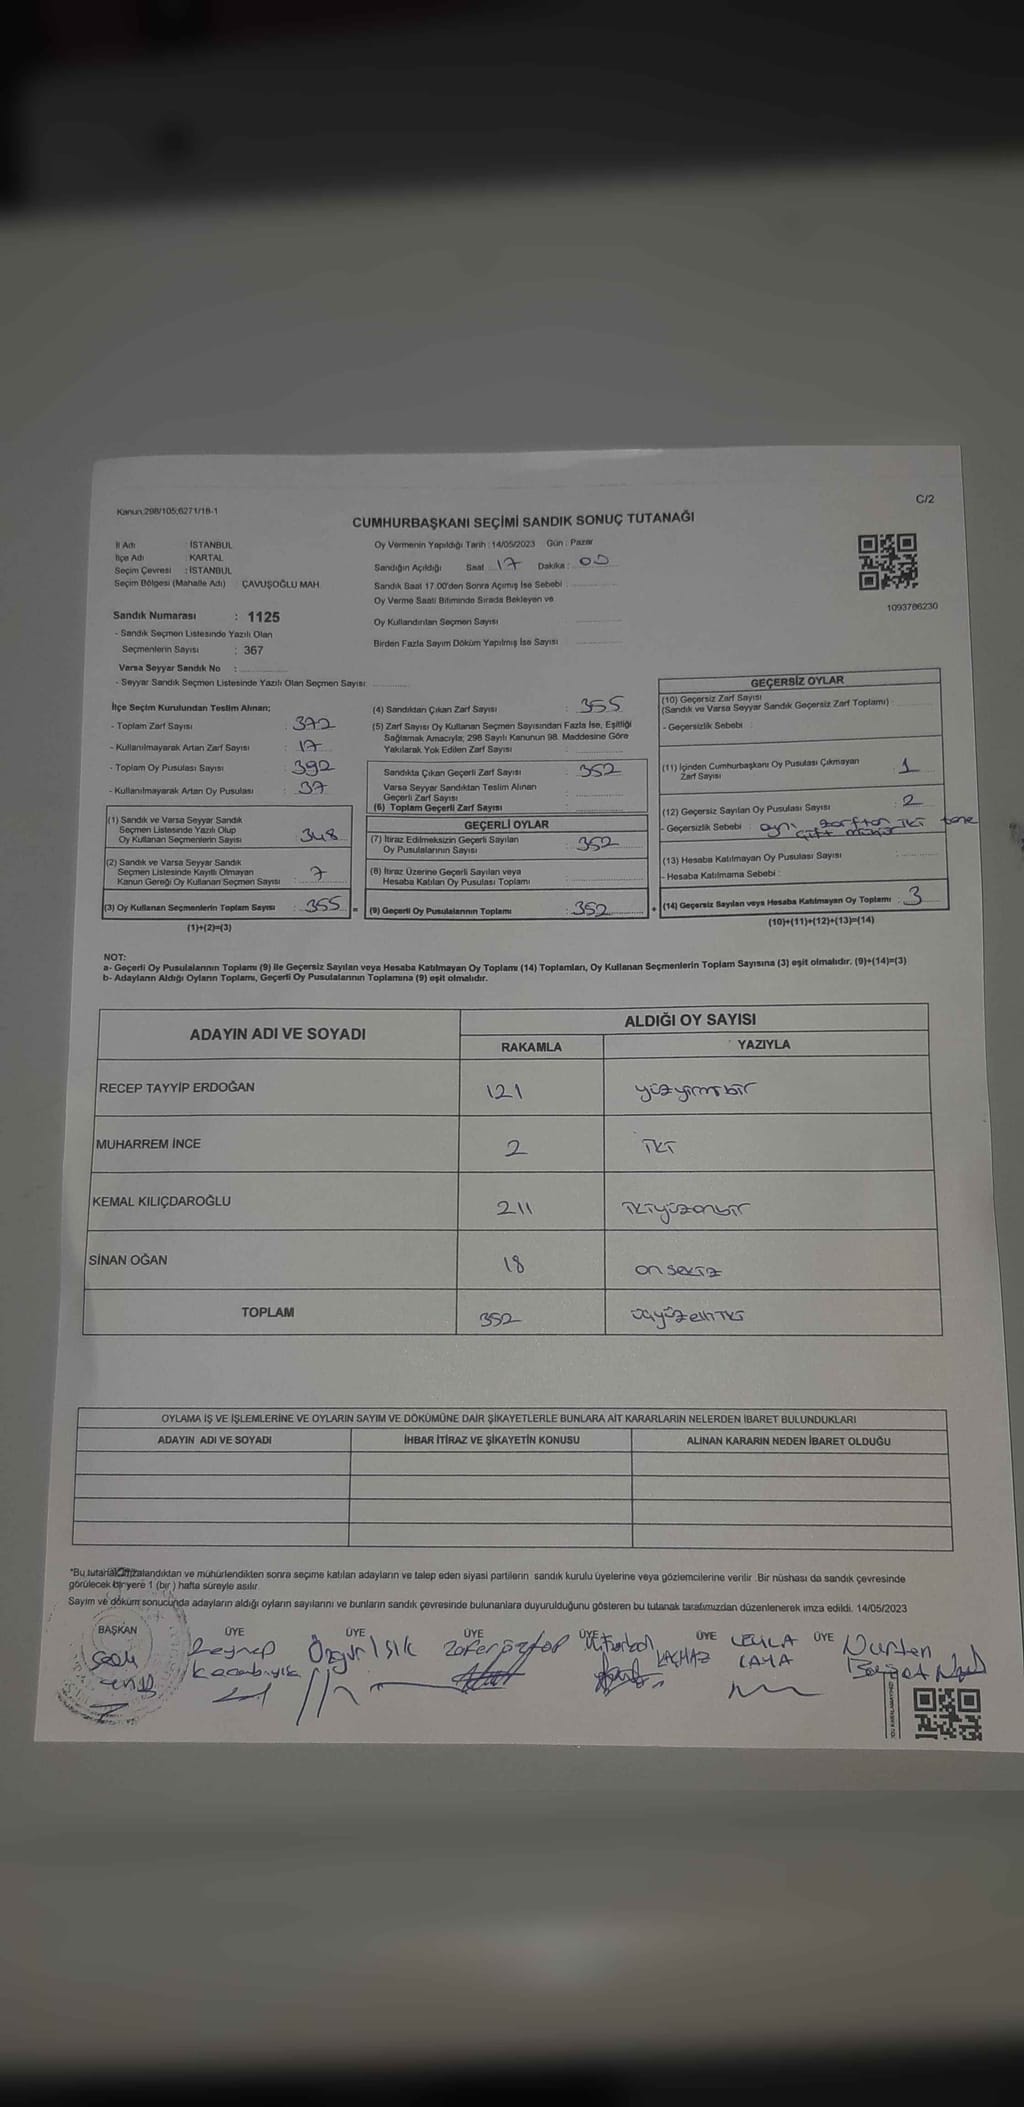 C/2
Kanun:298/105;6271/18-1
CUMHURBAŞKANI SEÇİMİ SANDIK SONUÇ TUTANAĞI
İl Adı : İSTANBUL
İlçe Adı : KARTAL
Seçim Çevresi : İSTANBUL
Seçim Bölgesi (Mahalle Adı) ÇAVUŞOĞLU MAH.
Oy Vermenin Yapıldığı Tarih : 14/05/2023 Gün : Pazar
Sandığın Açıldığı Saat : 17 Dakika : 00
Sandık Saat 17.00'den Sonra Açılmış İse Sebebi :
Oy Verme Saati Bitiminde Sırada Bekleyen ve
Oy Kullandırılan Seçmen Sayısı :
Birden Fazla Sayım Döküm Yapılmış İse Sayısı :
1093786230
Sandık Numarası : 1125
- Sandık Seçmen Listesinde Yazılı Olan
Seçmenlerin Sayısı : 367
Varsa Seyyar Sandık No :
- Seyyar Sandık Seçmen Listesinde Yazılı Olan Seçmen Sayısı:
İlçe Seçim Kurulundan Teslim Alınan;
- Toplam Zarf Sayısı : 372
- Kullanılmayarak Artan Zarf Sayısı : 17
- Toplam Oy Pusulası Sayısı : 392
- Kullanılmayarak Artan Oy Pusulası : 37
(1) Sandık ve Varsa Seyyar Sandık
Seçmen Listesinde Yazılı Olup
Oy Kullanan Seçmenlerin Sayısı : 348
(2) Sandık ve Varsa Seyyar Sandık
Seçmen Listesinde Kayıtlı Olmayan
Kanun Gereği Oy Kullanan Seçmen Sayısı : 7
(3) Oy Kullanan Seçmenlerin Toplam Sayısı : 355 =
(1)+(2)=(3)
(4) Sandıktan Çıkan Zarf Sayısı : 355
(5) Zarf Sayısı Oy Kullanan Seçmen Sayısından Fazla İse, Eşitliği
Sağlamak Amacıyla; 298 Sayılı Kanunun 98. Maddesine Göre
Yakılarak Yok Edilen Zarf Sayısı :
Sandıkta Çıkan Geçerli Zarf Sayısı : 352
Varsa Seyyar Sandıktan Teslim Alınan
Geçerli Zarf Sayısı :
(6) Toplam Geçerli Zarf Sayısı :
GEÇERLİ OYLAR
(7) İtiraz Edilmeksizin Geçerli Sayılan
Oy Pusulalarının Sayısı : 352
(8) İtiraz Üzerine Geçerli Sayılan veya
Hesaba Katılan Oy Pusulası Toplamı :
(9) Geçerli Oy Pusulalarının Toplamı : 352 +
GEÇERSİZ OYLAR
(10) Geçersiz Zarf Sayısı
(Sandık ve Varsa Seyyar Sandık Geçersiz Zarf Toplamı) :
- Geçersizlik Sebebi :
(11) İçinden Cumhurbaşkanı Oy Pusulası Çıkmayan
Zarf Sayısı : 1
(12) Geçersiz Sayılan Oy Pusulası Sayısı : 2
- Geçersizlik Sebebi : aynı zarftan iki tane
çift mühür
(13) Hesaba Katılmayan Oy Pusulası Sayısı :
- Hesaba Katılmama Sebebi :
(14) Geçersiz Sayılan veya Hesaba Katılmayan Oy Toplamı : 3
(10)+(11)+(12)+(13)=(14)
NOT:
a- Geçerli Oy Pusulalarının Toplamı (9) ile Geçersiz Sayılan veya Hesaba Katılmayan Oy Toplamı (14) Toplamları, Oy Kullanan Seçmenlerin Toplam Sayısına (3) eşit olmalıdır. (9)+(14)=(3)
b- Adayların Aldığı Oyların Toplamı, Geçerli Oy Pusulalarının Toplamına (9) eşit olmalıdır.
ADAYIN ADI VE SOYADI
ALDIĞI OY SAYISI
RAKAMLA YAZIYLA
RECEP TAYYİP ERDOĞAN 121 yüzyirmibir
MUHARREM İNCE 2 iki
KEMAL KILIÇDAROĞLU 211 ikiyüzonbir
SİNAN OĞAN 18 onsekiz
TOPLAM 352 üçyüzelliiki
OYLAMA İŞ VE İŞLEMLERİNE VE OYLARIN SAYIM VE DÖKÜMÜNE DAİR ŞİKAYETLERLE BUNLARA AİT KARARLARIN NELERDEN İBARET BULUNDUKLARI
ADAYIN ADI VE SOYADI İHBAR İTİRAZ VE ŞİKAYETİN KONUSU ALINAN KARARIN NEDEN İBARET OLDUĞU
*Bu tutanak imzalandıktan ve mühürlendikten sonra seçime katılan adayların ve talep eden siyasi partilerin sandık kurulu üyelerine veya gözlemcilerine verilir. Bir nüshası da sandık çevresinde
görülecek bir yere 1 (bir) hafta süreyle asılır.
Sayım ve döküm sonucunda adayların aldığı oyların sayılarını ve bunların sandık çevresinde bulunanlara duyurulduğunu gösteren bu tutanak tarafımızdan düzenlenerek imza edildi. 14/05/2023
BAŞKAN ÜYE ÜYE ÜYE ÜYE ÜYE ÜYE
Zeynep Özgür Işık Zafer Öztop LEYLA Nurten
Karabıyık KAÇMAZ KAYA